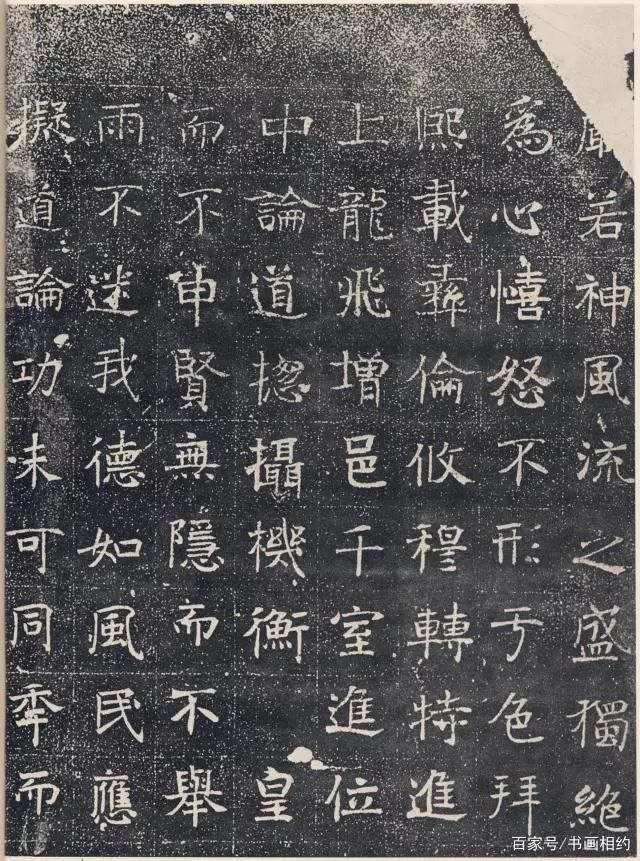 若神風流之盛獨絶
爲心憘怒不形于色拜
熙載彝倫攸穆轉特進
上龍飛增邑千室進位
中論道揔攝機衡 皇
而不申賢無隱而不舉
雨不迷我德如風民應
擬追論功未可同秊而
百家号/书画相约